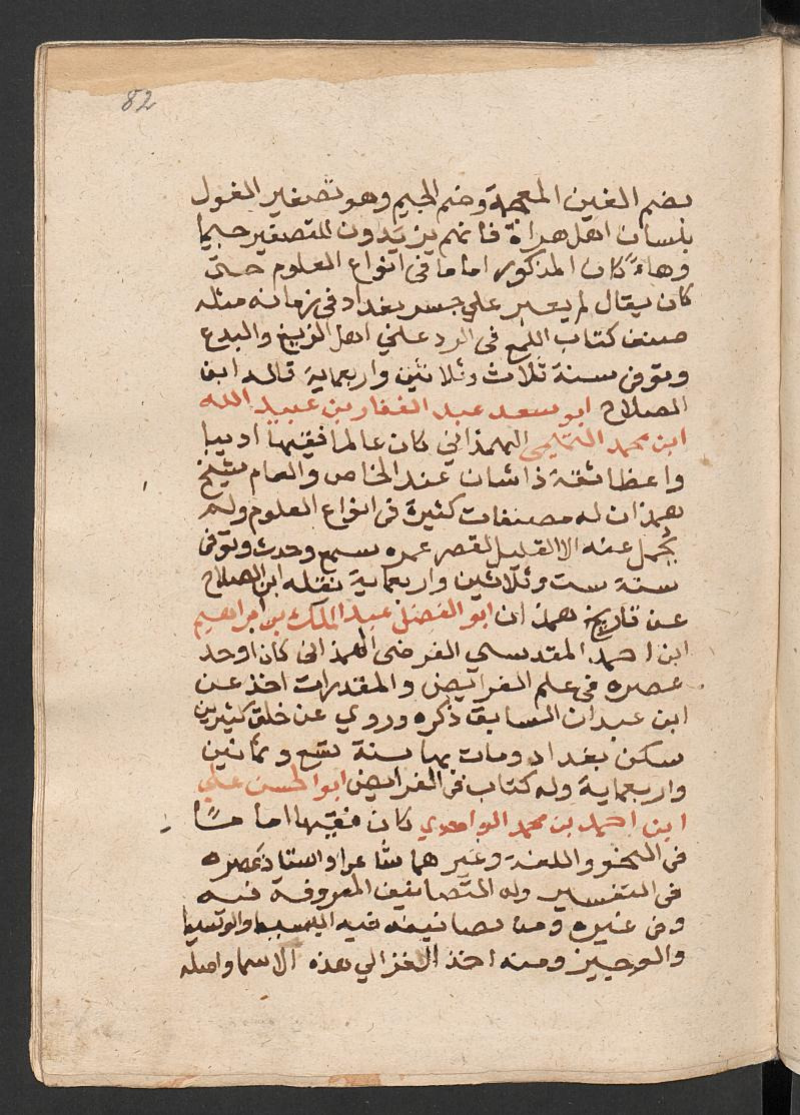 82
بضم الغين المعجمة وضم الجيم وهو تصغير الغول
بلسان اهل هراة فانهم يزيدون للتصغير جيما
وهاءً كان المذكور اماما فى انواع العلوم حتى
كان يقال لم يعبر علي جسر بغداد فى زمانه مثله
صنف كتاب اللمع فى الرد علي اهل الزيغ والبدع
وتوفى سنة ثلاث وثلاثين واربعماية قاله ابن
الصلاح ابو سعد عبد الغفار بن عبيد الله
ابن محمد التميمى الهمذاني كان عالما فقيها اديبا
واعظا ثقة ذا شان عند الخاص والعام شيخ
همذان له مصنفات كثيرة فى انواع العلوم ولم
يحمل عنه الا القليل لقصر عمره سمع وحدث وتوفى
سنة ست وثلاثين واربعماية نقله ابن الصلاح
عن تاريخ همذان ابو الفضل عبد الملك بن ابراهيم
ابن احمد المقدسي الفرضى الهمذانى كان اوحد
عصره فى علم الفرايض والمقدرات اخذ عن
ابن عبدان السابق ذكره وروي عن خلق كثيرين
سكن بغداد ومات بها سنة تسع وثمانين
واربعماية وله كتاب فى الفرايض ابو الحسن علي
ابن احمد بن محمد الواحدي كان فقيها اماما
فى النحو واللغة وغيرهما شاعرا واستاذ عصره
فى التفسير وله التصانيف المعروفة فيه
وفى غيره ومن تصانيفه فيه البسيط والوسيط
والوجيز ومنه اخذ الغزالي هذه الاسما واصله